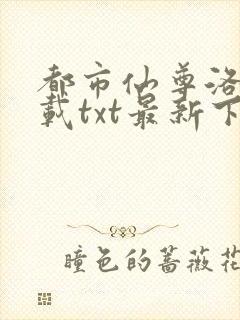 都市仙尊洛
载txt最新下
瞳色的蔷薇花